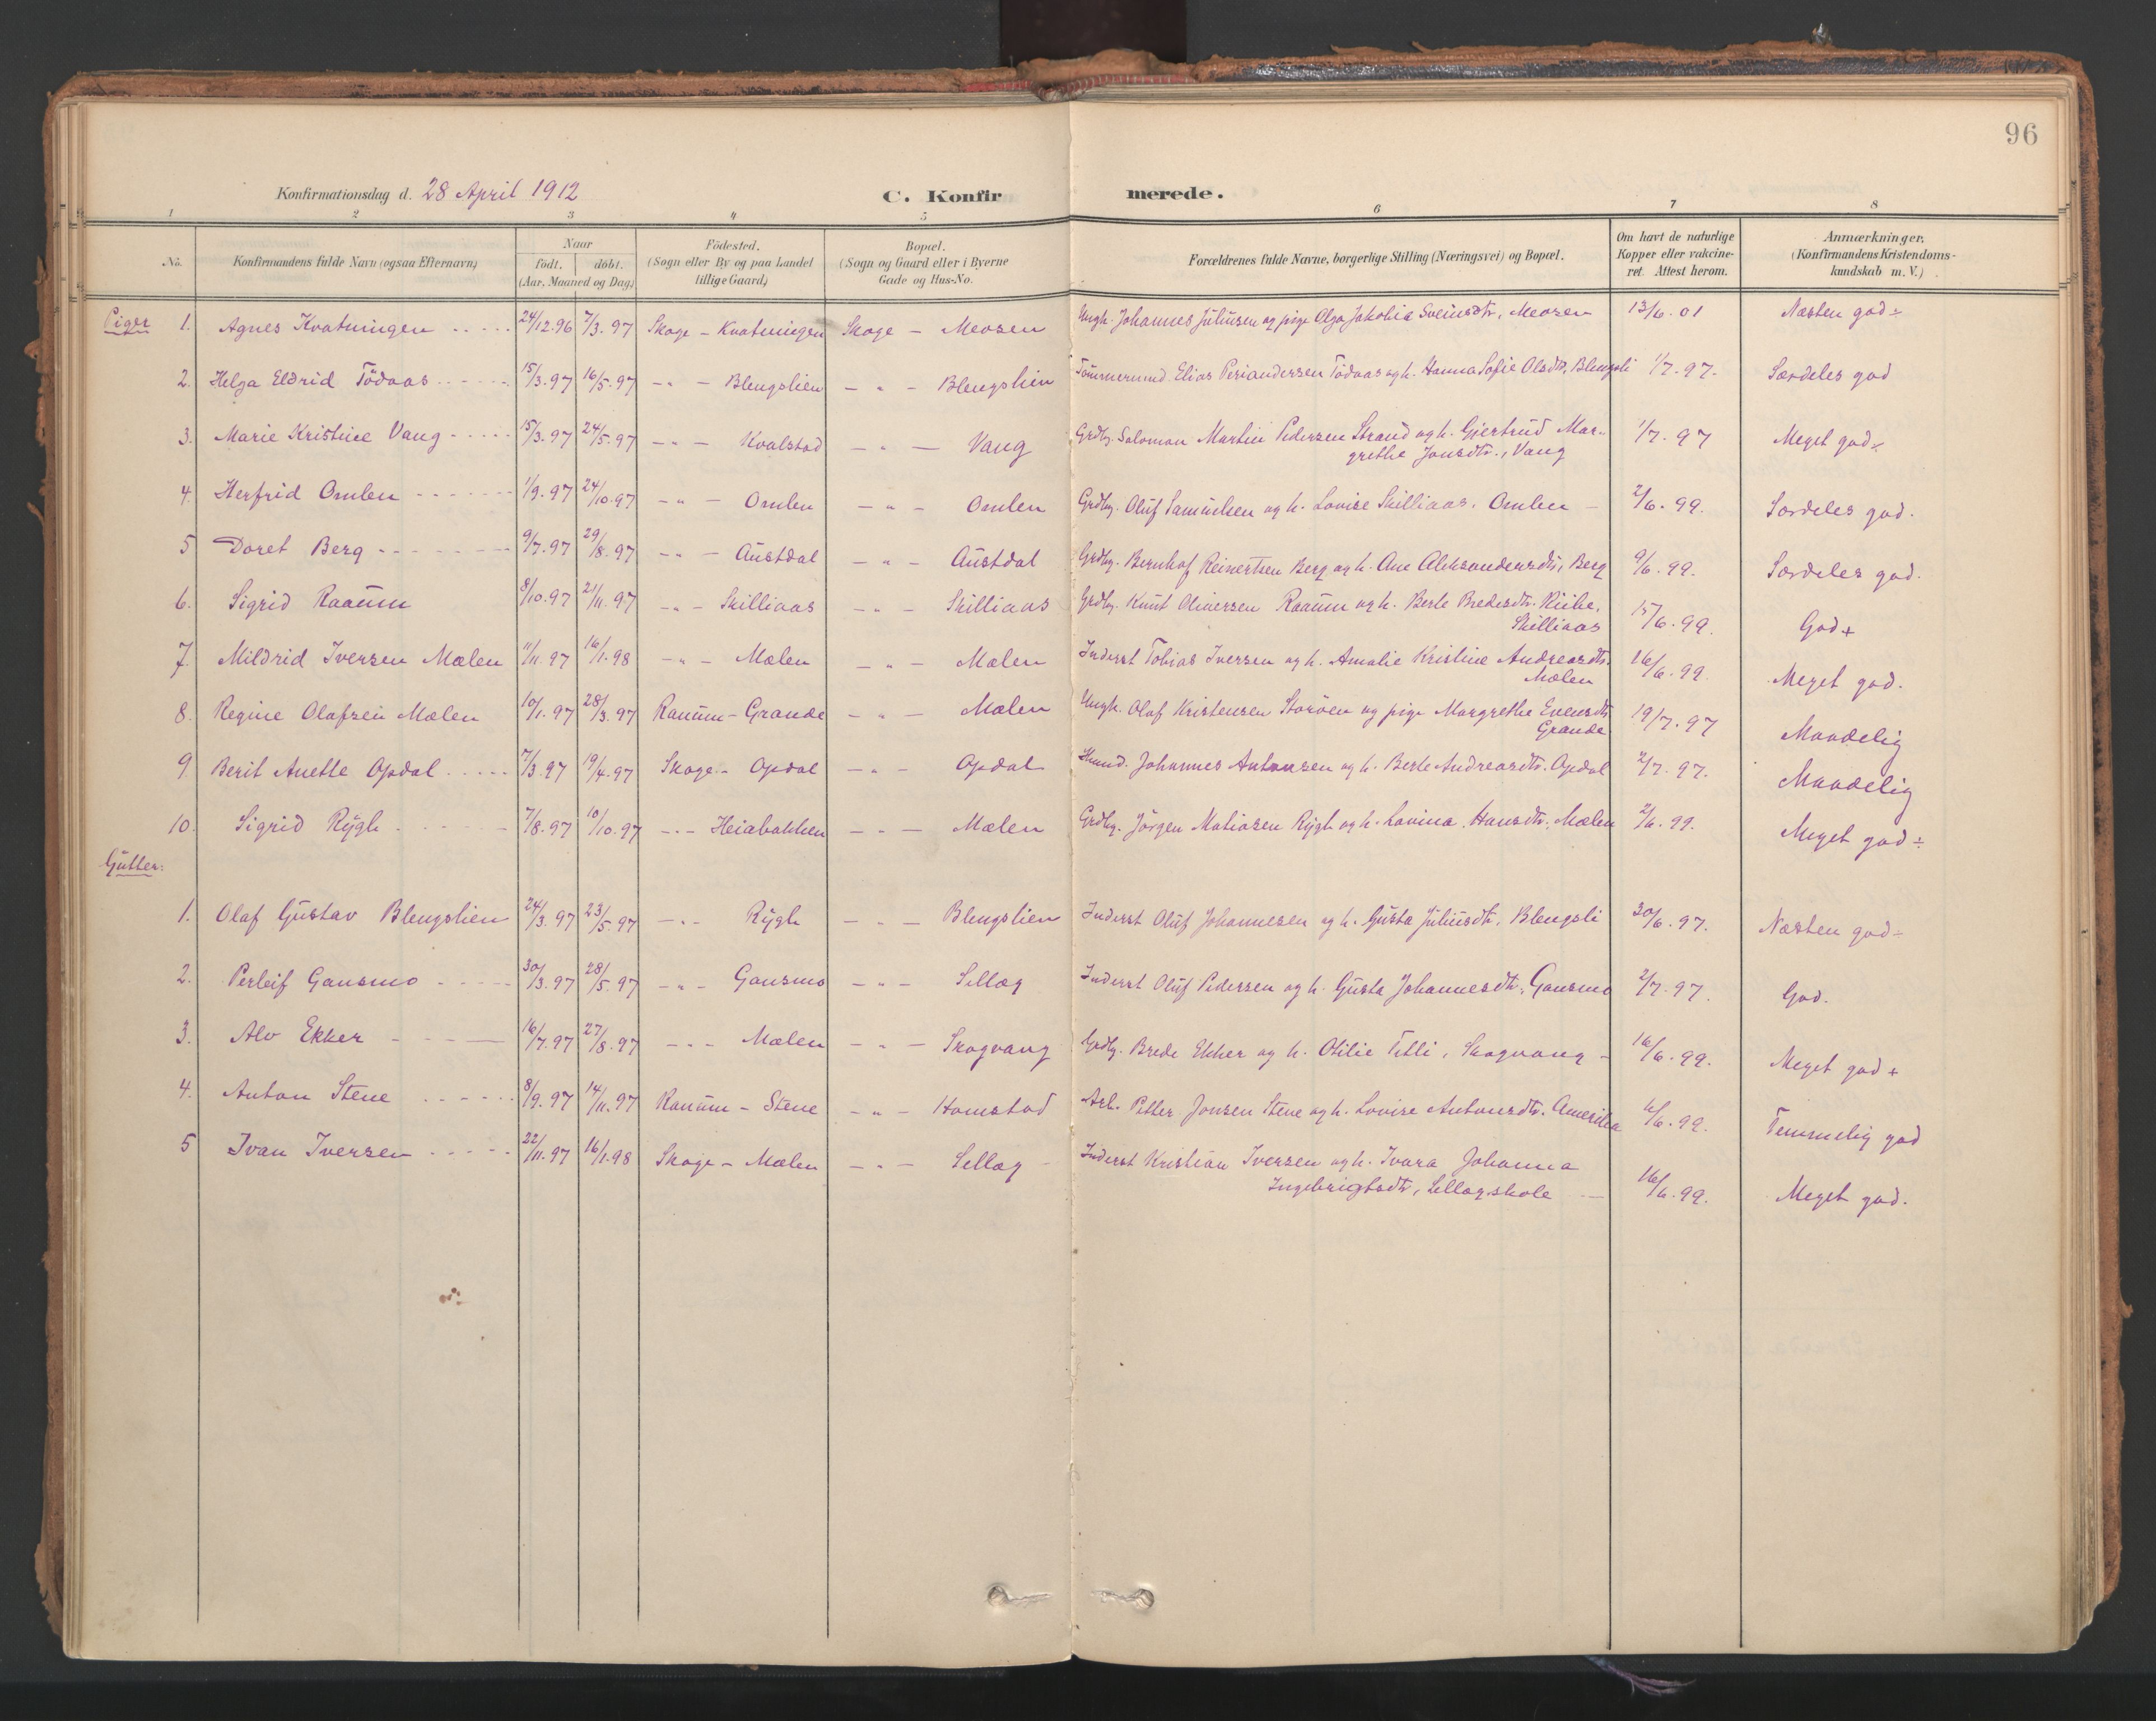 96
Konfirmationsdag d. 28 April 1912 C. Konfirmerede.
1 2 3 4 5 6 7 8
No. Konfirmandens fulde Navn (ogsaa Efternavn) Naar födt. döbt. (Aar, Maaned og Dag) Födested. (Sogn eller By og paa Landet tillige Gaard) Bopæl. (Sogn og Gaard eller i Byerne Gade og Hus-No. Forældrenes fulde Navne, borgerlige Stilling (Næringsvei) og Bopæl. Om havt de naturlige Kopper eller vakcineret. Attest herom. Anmærkninger. (Konfirmandens Kristendomskundskab m. V.)
Piger 1. Agnes Kvatningen 24/12.96 7/3.97 Skage - Kvatningen Skage - Meosen Ungk. Johannes Juliusen og pige Olga Jakobia Sveinsdtr, Meosen 13/6.01 Næsten god÷
2. Helga Eldrid Tödaas 15/3.97 16/5.97 - " - Blengslien - " - Blengslien Tömmermd. Elias Periandersen Tödaas og h. Hanna Sofie Olsdtr, Blengsli 1/7.97. Særdeles god
3. Marie Kristine Vang 15/3.97 24/5.97 - " - Kvalstad - " - Vang Grdbg. Salomon Martin Pedersen Strand og h. Gjertrud Mar-
grethe Jonsdtr., Vang 1/7.97 Meget god÷
4. Herfrid Omlen 1/9.97 24/10.97 - " - Omlen - " - Omlen Grdbg. Oluf Samuelsen og h. Lovise Skilliaas, Omlen 2/6.99. Særdeles god.
5 Doret Berg 9/7.97 29/8.97 - " - Austdal - " - Austdal Grdbg. Bernhof Reinertsen Berg og h. Ane Aleksandersdtr, Berg 9/6.99. Særdeles god.
6. Sigrid Raaum 8/10.97 21/11.97 - " - Skilliaas - " - Skilliaas Grdbg. Knut Oliversen Raaum og h. Berle Bredesdtr. Riibe,
Skilliaas 15/6.99. God+
7. Mildrid Iversen Mælen 11/11.97 16/1.98 - " - Mælen - " - Mælen Inderst Tobias Iversen og h. Amalie Kristine Andreasdtr.
Mælen 16/6.99. Meget god.
8. Regine Olafsen Mælen 10/1.97 28/3.97 Ranum - Grande - " - Mælen Ungk. Olaf Kristensen Storöen og pige Margrethe Evensdtr
Grande 19/7.97 Maadelig
9. Berit Anette Opdal 7/3.97 19/4.97 Skage - Opdal - " - Opdal Husmd. Johannes Antonsen og h. Berle Andreasdtr. Opdal 2/7.97. Maadelig
10. Sigrid Rygh 7/8.97 10/10.97 - " - Heiabakken - " - Mælen Grdbg. Jörgen Matiasen Rygh og h. Lovina Hansdtr. Mælen 2/6.99. Meget god÷
Gutter:
1. Olaf Gustav Blengslien 24/3.97 23/5.97 - " - Rygh - " - Blengslien Inderst Oluf Johannesen og h. Gusta Juliusdtr, Blengsli 30/6.97. Næsten god÷
2. Perleif Gansmo 30/3.97 28/5.97 - " - Gansmo - " - Sellæg Inderst Oluf Pedersen og h. Gusta Johannesdtr, Gansmo 2/7.97. God.
3. Alv Ekker 16/7.97 27/8.97 - " - Mælen - " - Skogvang Grdbg. Brede Ekker og h. Otilie Tetli, Skogvang 16/6.99. Meget god+
4. Anton Stene 8/9.97 14/11.97 Ranum - Stene - " - Homstad Arb. Petter Jonsen Stene og h. Lovise Antonsdtr. Amerika 6/6.99. Temmelig god
5 Ivan Iversen 22/11.97 16/1.98 Skage - Mælen - " - Sellæg Inderst Kristian Iversen og h. Ivara Johanna
Ingebrigtsdtr, Sellægskole 16/6.99. Meget god.